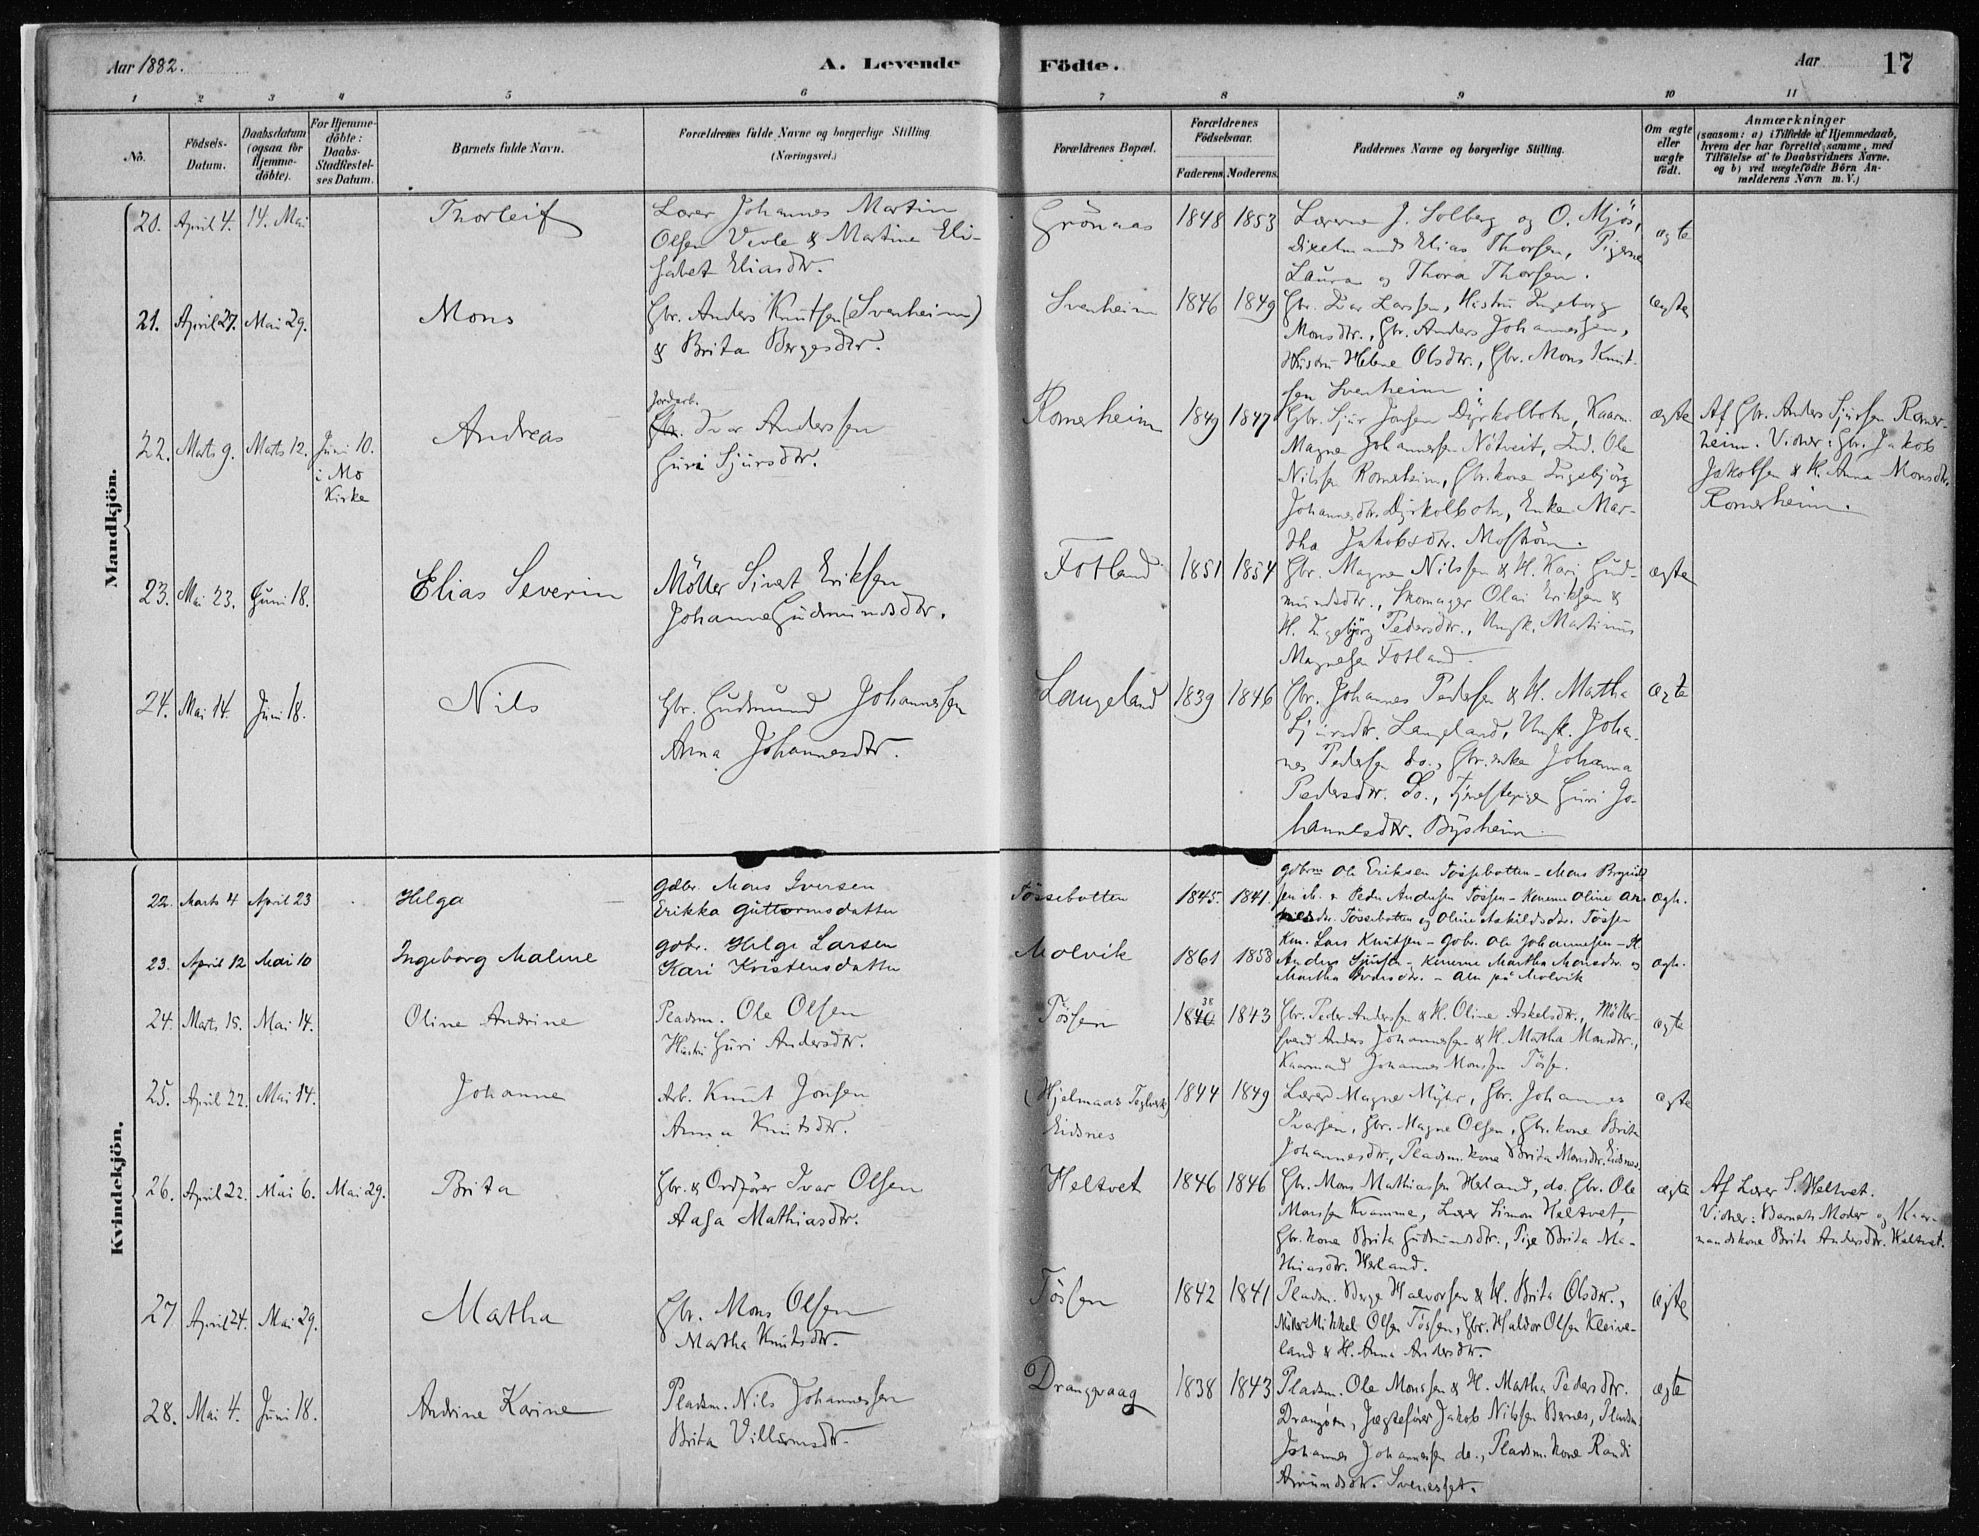 Aar 1882.
A. Levende Födte.
Aar
17
1 2 3 4 5 6 7 8 9 10 11
No.
Födsels-Datum.
Daabsdatum (ogsaa for Hjemme-döbte).
For Hjemme-döbte: Daabs-Stadfæstel-ses Datum.
Barnets fulde Navn.
Forældrenes fulde Navne og borgerlige Stilling (Næringsvei.)
Forældrenes Bopæl.
Forældrenes Födselsaar.
Faderens Moderens
Faddernes Navne og borgerlige Stilling.
Om ægte eller uægte födt.
Anmærkninger
(saasom: a) i Tilfælde af Hjemmedaab, hvem der har forrettet samme, med Tilföielse af to Daabsvidners Navne, og b) ved uægtefödte Börn Anmelderens Navn m. V.)
Mandkjön.
20. April 4. 14. Mai
Thorleif
Lærer Johannes Martin
Olsen Veole & Martine Eli-
sabet Eliasdtr.
Grönaas 1848 1853
Lærerne J. Solberg og O. Mjös,
Elias Thorsen, Pigerne
Laura og Thora Thorsen.
ægte
21. April 27. Mai 29.
Mons
Gbr. Anders Knutsen (Svenheim)
& Brita Bergesdtr.
Svenheim 1846 1849
Gbr. Ivar Larsen, Hustru Ingeborg
Monsdtr., Gbr. Anders Johannessen,
Hustru Helene Olsdtr., Gbr. Mons Knut-
sen Svenheim.
ægte
22. Marts 9. Marts 12. Juni 10.
i Mo
Kirke
Andreas
Jordarb.
Gbr. Ivar Anderssen
Guri Sjursdtr.
Romerheim 1849 1847
Gbr. Sjur Jonsen Dyrkolbotn, Kaarm.
Magne Johannesen Nötveit, Ind. Ole
Nilssen Romerheim, Gbr.kone Ingebjörg
Johannesdtr. Dyrkolbotn, Enke Mar-
tha Jakobsdtr. Mofström.
ægte
Af Gbr. Anders Sjursen Romer-
heim. Vidner: Gbr. Jakob
Jakobsen & H. Anna Monsdtr.
Romerheim.
23. Mai 23. Juni 18.
Elias Severin
Möller Sivert Eriksen
Johanne Gudmundsdtr.
Fotland 1851 1854
Gbr. Magne Nilssen & H. Kari Gud-
mundsdtr., Skomager Olai Eriksen &
H. Ingebjörg Pedersdtr., Ungk. Martinus
Magnesen Fotland.
ægte
24. Mai 14. Juni 18.
Nils
Gbr. Gudmund Johannesen
Anna Johannesdtr.
Langeland 1839 1846
Gbr. Johannes Pedersen & H. Martha
Sjursdtr. Langeland, Ungk. Joha-
nes Pedersen do., Gbr.enke Johanna
Pedersdtr. Do., Tjenestepige Guri Jo-
hannesdtr. Bysheim.
ægte
Kvindekjön.
22. Marts 4 April 23
Helga
Gdbr. Mons Iversen
Erikka Guttormsdatter
Tössebotten 1845. 1841.
Gdbrne Ole Eriksen Tössebotten - Mons
sen ib. & Peder Andersen Tössen - Konerne Oline An-
dtr. Tössebotten og Oline Askildsdtr. Tössen
ægte.
23. April 12 Mai 10
Ingeborg Maline
Gdbr. Helge Larsen
Kari Kristensdatter
Molvik 1861 1858
Km. Lars Knutsen - Gdbr. Ole Johannesen - H.
Anders Sjursen - Konerne Martha Monsdtr. og
Martha Iversdtr. - Alle på Molvik
ægte.
24. Marts 15. Mai 14.
Oline Andrine
Pladsm. Ole Olsen
Hustru Guri Andersdtr.
Tössen 1840 38 1843
Gbr. Peder Anderssen & H. Oline Askelsdtr., Möller-
svend Anders Johannesen & H. Martha Monsdtr.,
Kaarmand Johannes Monsen Tössen.
ægte
25. April 22. Mai 14.
Johanne
Arb. Knut Jonsen
Anna Knutsdtr.
(Hjelmaas Teglverk)
Eidsnes
1844 1849
Lærer Magne Myhr, Gbr. Johannes
Ivarsen, Gbr. Magne Olsen, Gbr. kone Brita
Johannesdtr., Pladsm.kone Brita Monsdtr. Eidsnes.
ægte
26. April 22. Mai 6. Mai 29.
Brita
Gbr. & Ordförer Ivar Olsen
Aasa Mathiasdtr.
Heltvet 1846 1846
Gbr. Mons Mathiassen Herland, do. Gbr. Ole
Monssen Kvamme, Lærer Simon Heltvet,
Gbr. kone Brita Gudmundsdtr., Pige Brita Ma-
thiasdtr. Herland.
ægte
Af Lærer S. Heltvet.
Vidner: Barnets Moder og Kaar-
mandskone Brita Andersdtr. Heltvet.
27 April 24. Mai 29.
Martha
Gbr. Mons Olsen
Martha Knutsdtr.
Tössen 1842 1841
Pladsm. Berge Halvorsen & H. Brita Olsdtr.,
Möller Mikkel Olsen Tössen, Gbr. Haldor Olsen Kleive-
land & H. Anna Andersdtr.
ægte
28. Mai 4. Juni 18.
Andrine Karine
Pladsm. Nils Johannessen
Brita Villumsdtr.
Drangvaag 1838 1843
Pladsm. Ole Monssen & H. Martha Pedersdtr.
Drangöen, Jægtefører Jakob Nilssen Bernes, Pladsm.
Johannes Johannessen do., Pladsm.kone Randi
Amundsdtr. Svenesset.
ægte